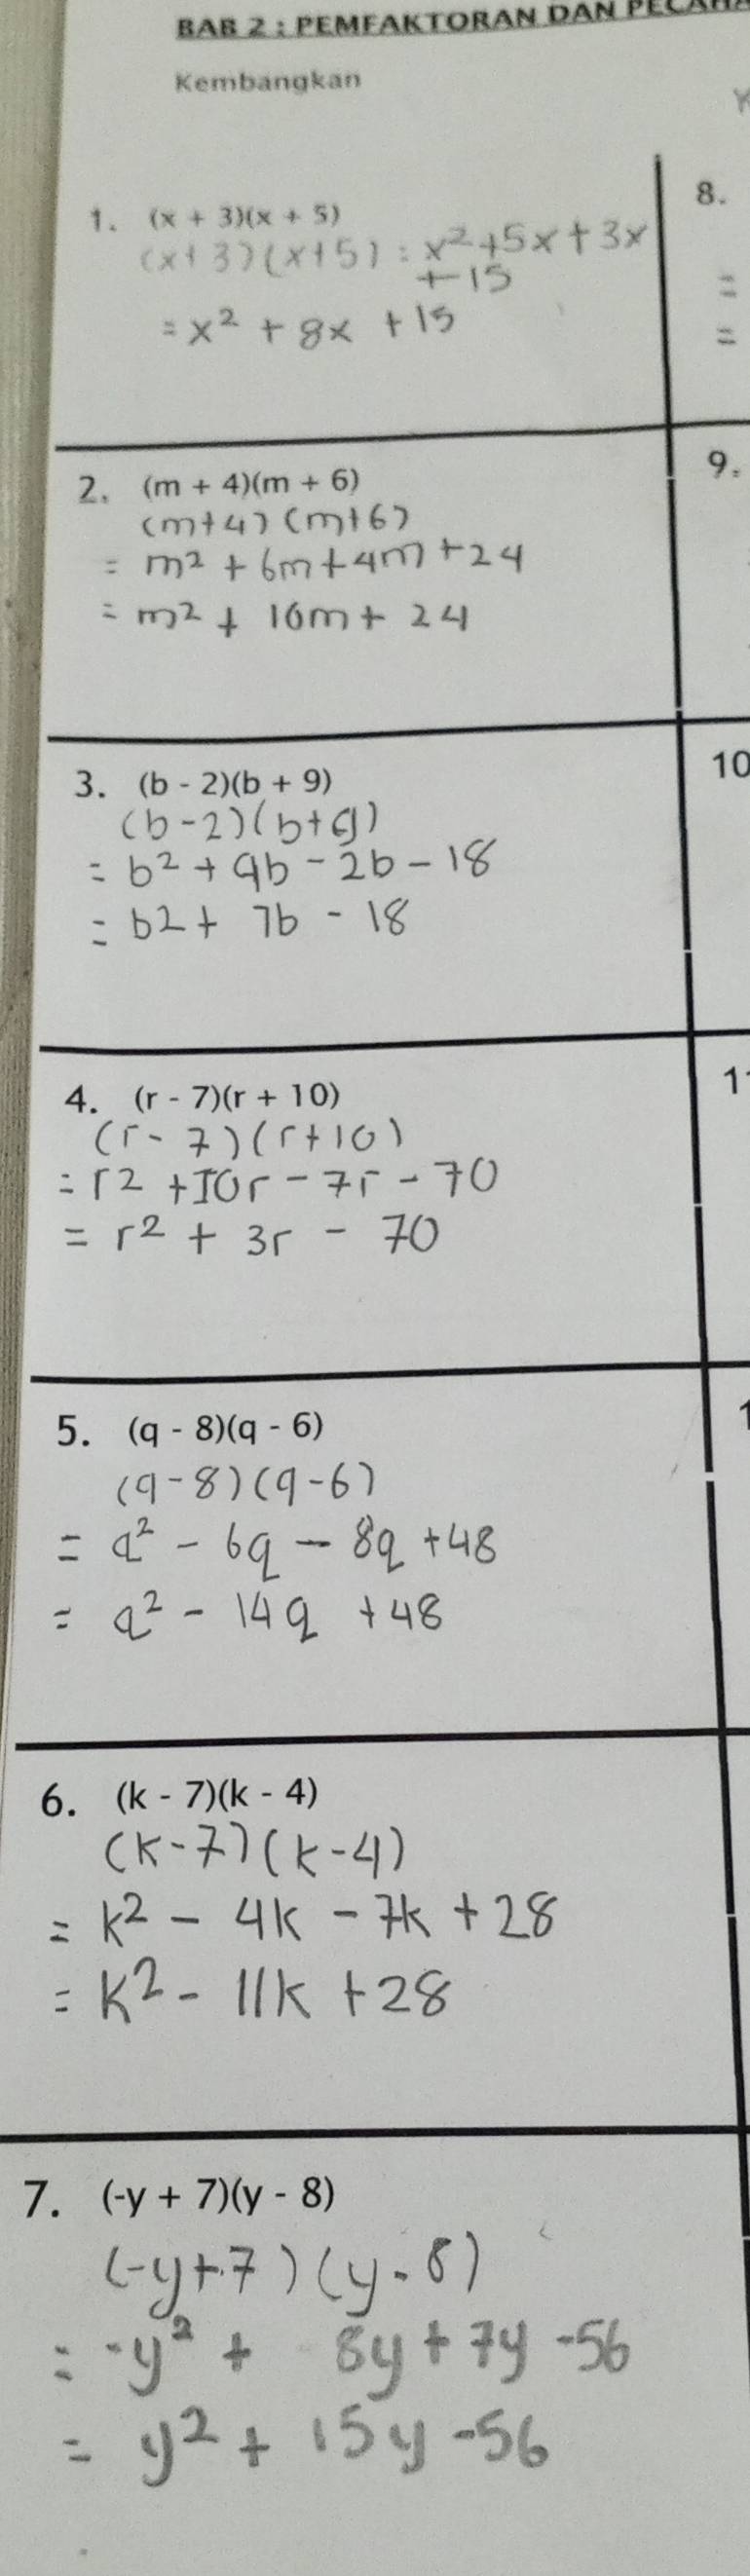 BAB 2 : PEMFAKTORAN DAN PECAHA
Kembangkan
1. (x + 3)(x + 5)
(x+3)(x+5) = x²+5x+3x
+15
= x² + 8x + 15
2. (m + 4)(m + 6)
(m+4)(m+6)
= m² + 6m+4m+24
= m² + 10m + 24
3. (b - 2)(b + 9)
(b-2)(b+9)
= b² + 9b - 2b - 18
= b2 + 7b - 18
4. (r - 7)(r + 10)
(r - 7)(r+10)
= r2 + 10r - 7r - 70
= r² + 3r - 70
5. (q - 8)(q - 6)
(q-8)(q-6)
= q² - 6q - 8q +48
= q² - 14q +48
6. (k - 7)(k - 4)
(k-7)(k-4)
= k² - 4k - 7k + 28
= k² - 11k +28
7. (-y + 7)(y - 8)
(-y+7)(y-8)
= -y² + 8y + 7y -56
= y² + 15y -56
8.
=
=
9.
10
1
1